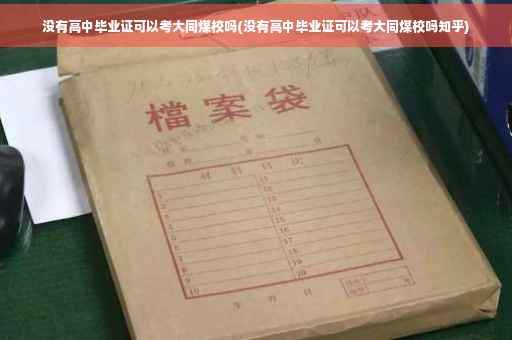 没有高中毕业证可以考大同煤校吗(没有高中毕业证可以考大同煤校吗知乎)
檔案袋
材料目次
1 11
2 12
3 13
4 14
5 15
6 16
7 17
8 18
9 19
10 20
年 月 日